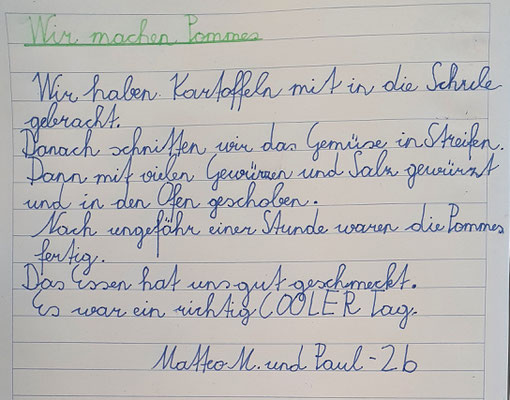 Wir machen Pommes
Wir haben Kartoffeln mit in die Schule
gebracht.
Danach schnitten wir das Gemüse in Streifen.
Dann mit vielen Gewürzen und Salz gewürzt
und in den Ofen geschoben.
Nach ungefähr einer Stunde waren die Pommes
fertig.
Das Essen hat uns gut geschmeckt.
Es war ein richtig COOLER Tag.
Matteo M. und Paul - 2b